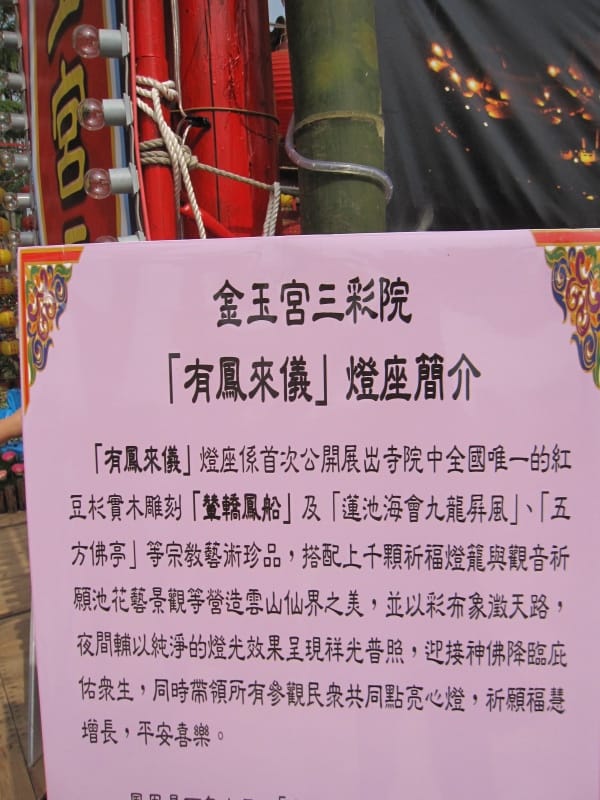 宮
金玉宮三彩院
「有鳳來儀」燈座簡介
「有鳳來儀」燈座係首次公開展出寺院中全國唯一的紅
豆杉實木雕刻「輦轎鳳船」及「蓮池海會九龍屏風」、「五
方佛亭」等宗教藝術珍品，搭配上千顆祈福燈籠與觀音祈
願池花藝景觀等營造雲山仙界之美，並以彩布象徵天路，
夜間輔以純淨的燈光效果呈現祥光普照，迎接神佛降臨庇
佑衆生，同時帶領所有參觀民衆共同點亮心燈，祈願福慧
增長，平安喜樂。